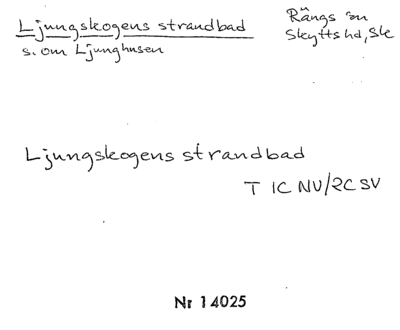 Ljungskogens strandbad
s. om Ljunghusen
Rängs sn
Skytts hd, Sk
Ljungskogens strandbad
T 1C NV/2C SV
Nr 14025